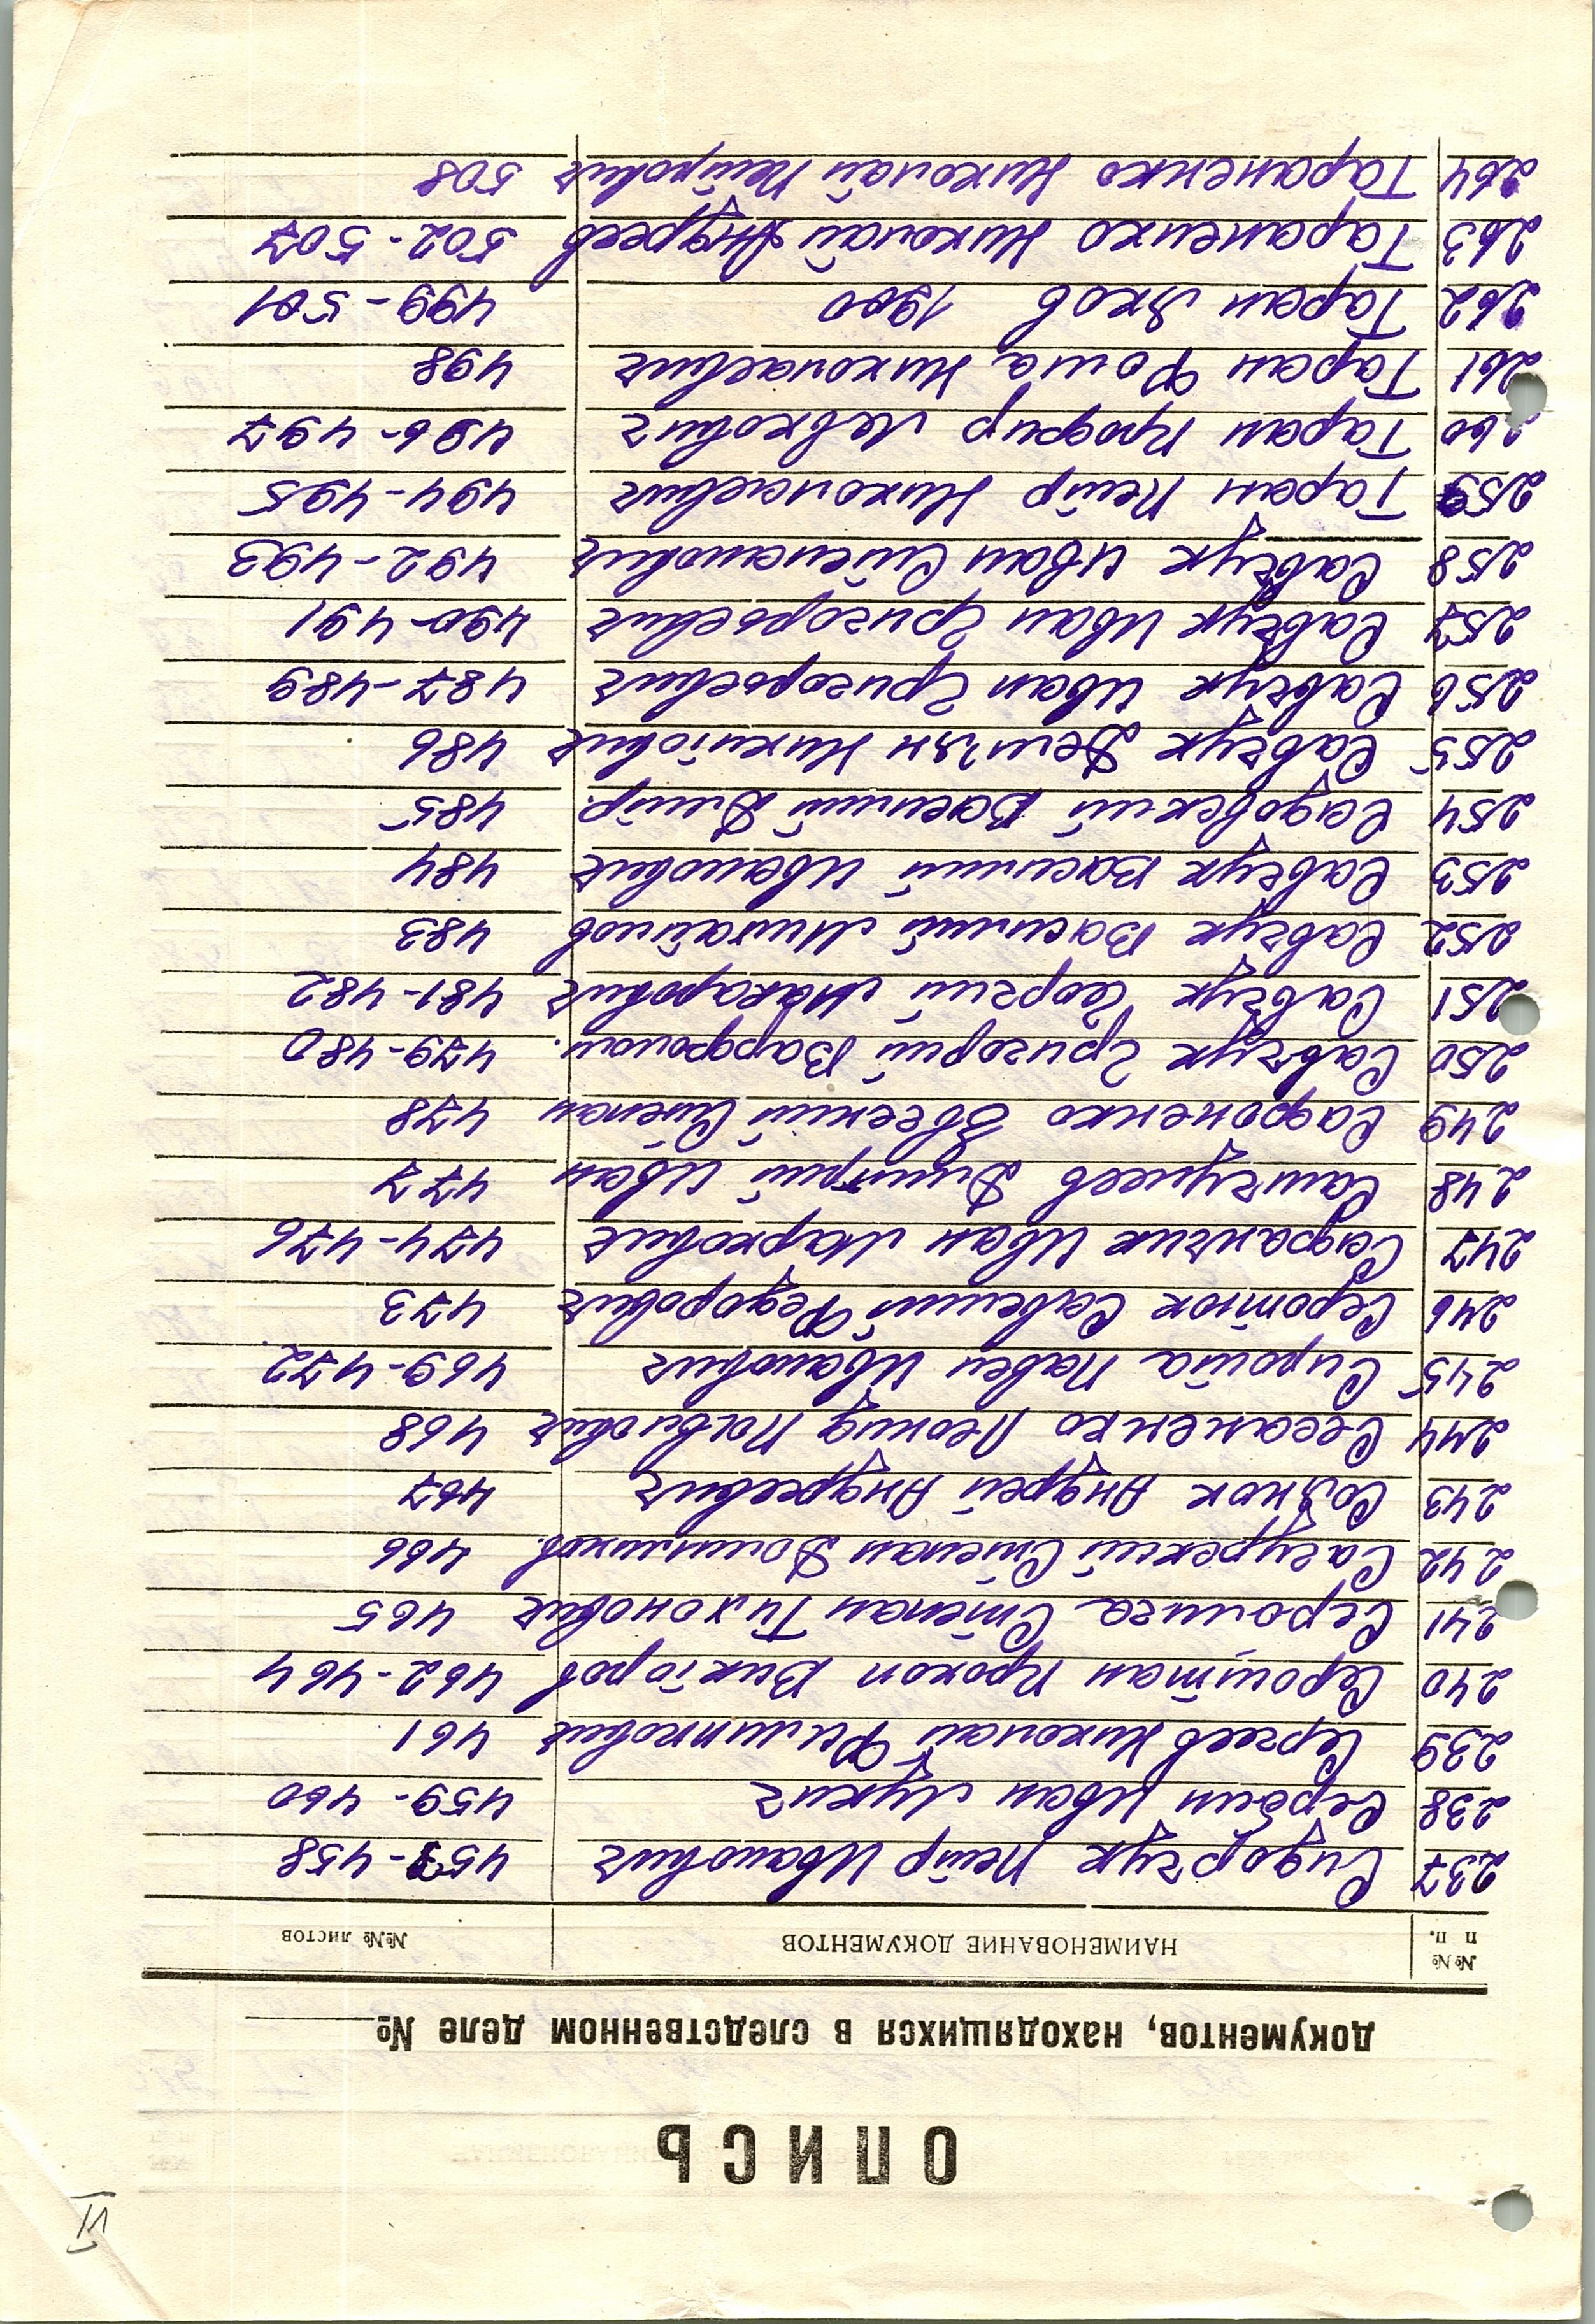 VI
ОПИСЬ
документов, находящихся в следственном деле №
№№ п п. НАИМЕНОВАНИЕ ДОКУМЕНТОВ №№ листов
237 Сидорчук Петр Иванович 457-458
238 Сербин Иван Лукич 459-460
239 Сергеев Николай Филиппович 461
240 Сероштан Прокоп Викторов 462-464
241 Степан Тихонович 465
242 Степан 466
243 Андрей Андреевич 467
244 Леонид 468
245 Сирота Павел Иванович 469-472
246 Серотюк Савелий Федорович 473
247 Сафранчик Иван Маркович 474-476
248 Дмитрий Иван 477
249 Сафроненко Евгений Степан 478
250 Савчук Григорий Варфолом. 479-480
251 Савчук Георгий Макарович 481-482
252 Савчук Василий Михайлов 483
253 Савчук Василий Иванович 484
254 Садовский Василий Дмитр. 485
255 Савчук Демьян Никитович 486
256 Савчук Иван Григорьевич 487-489
257 Савчук Иван Григорьевич 490-491
258 Савчук Иван Степанович 492-493
259 Таран Петр Николаевич 494-495
260 Таран Левкович 496-497
261 Таран Фома Николаевич 498
262 Таран Яков 1900 499-501
263 Тараненко Николай Андреев 502-507
264 Тараненко Николай Петрович 508